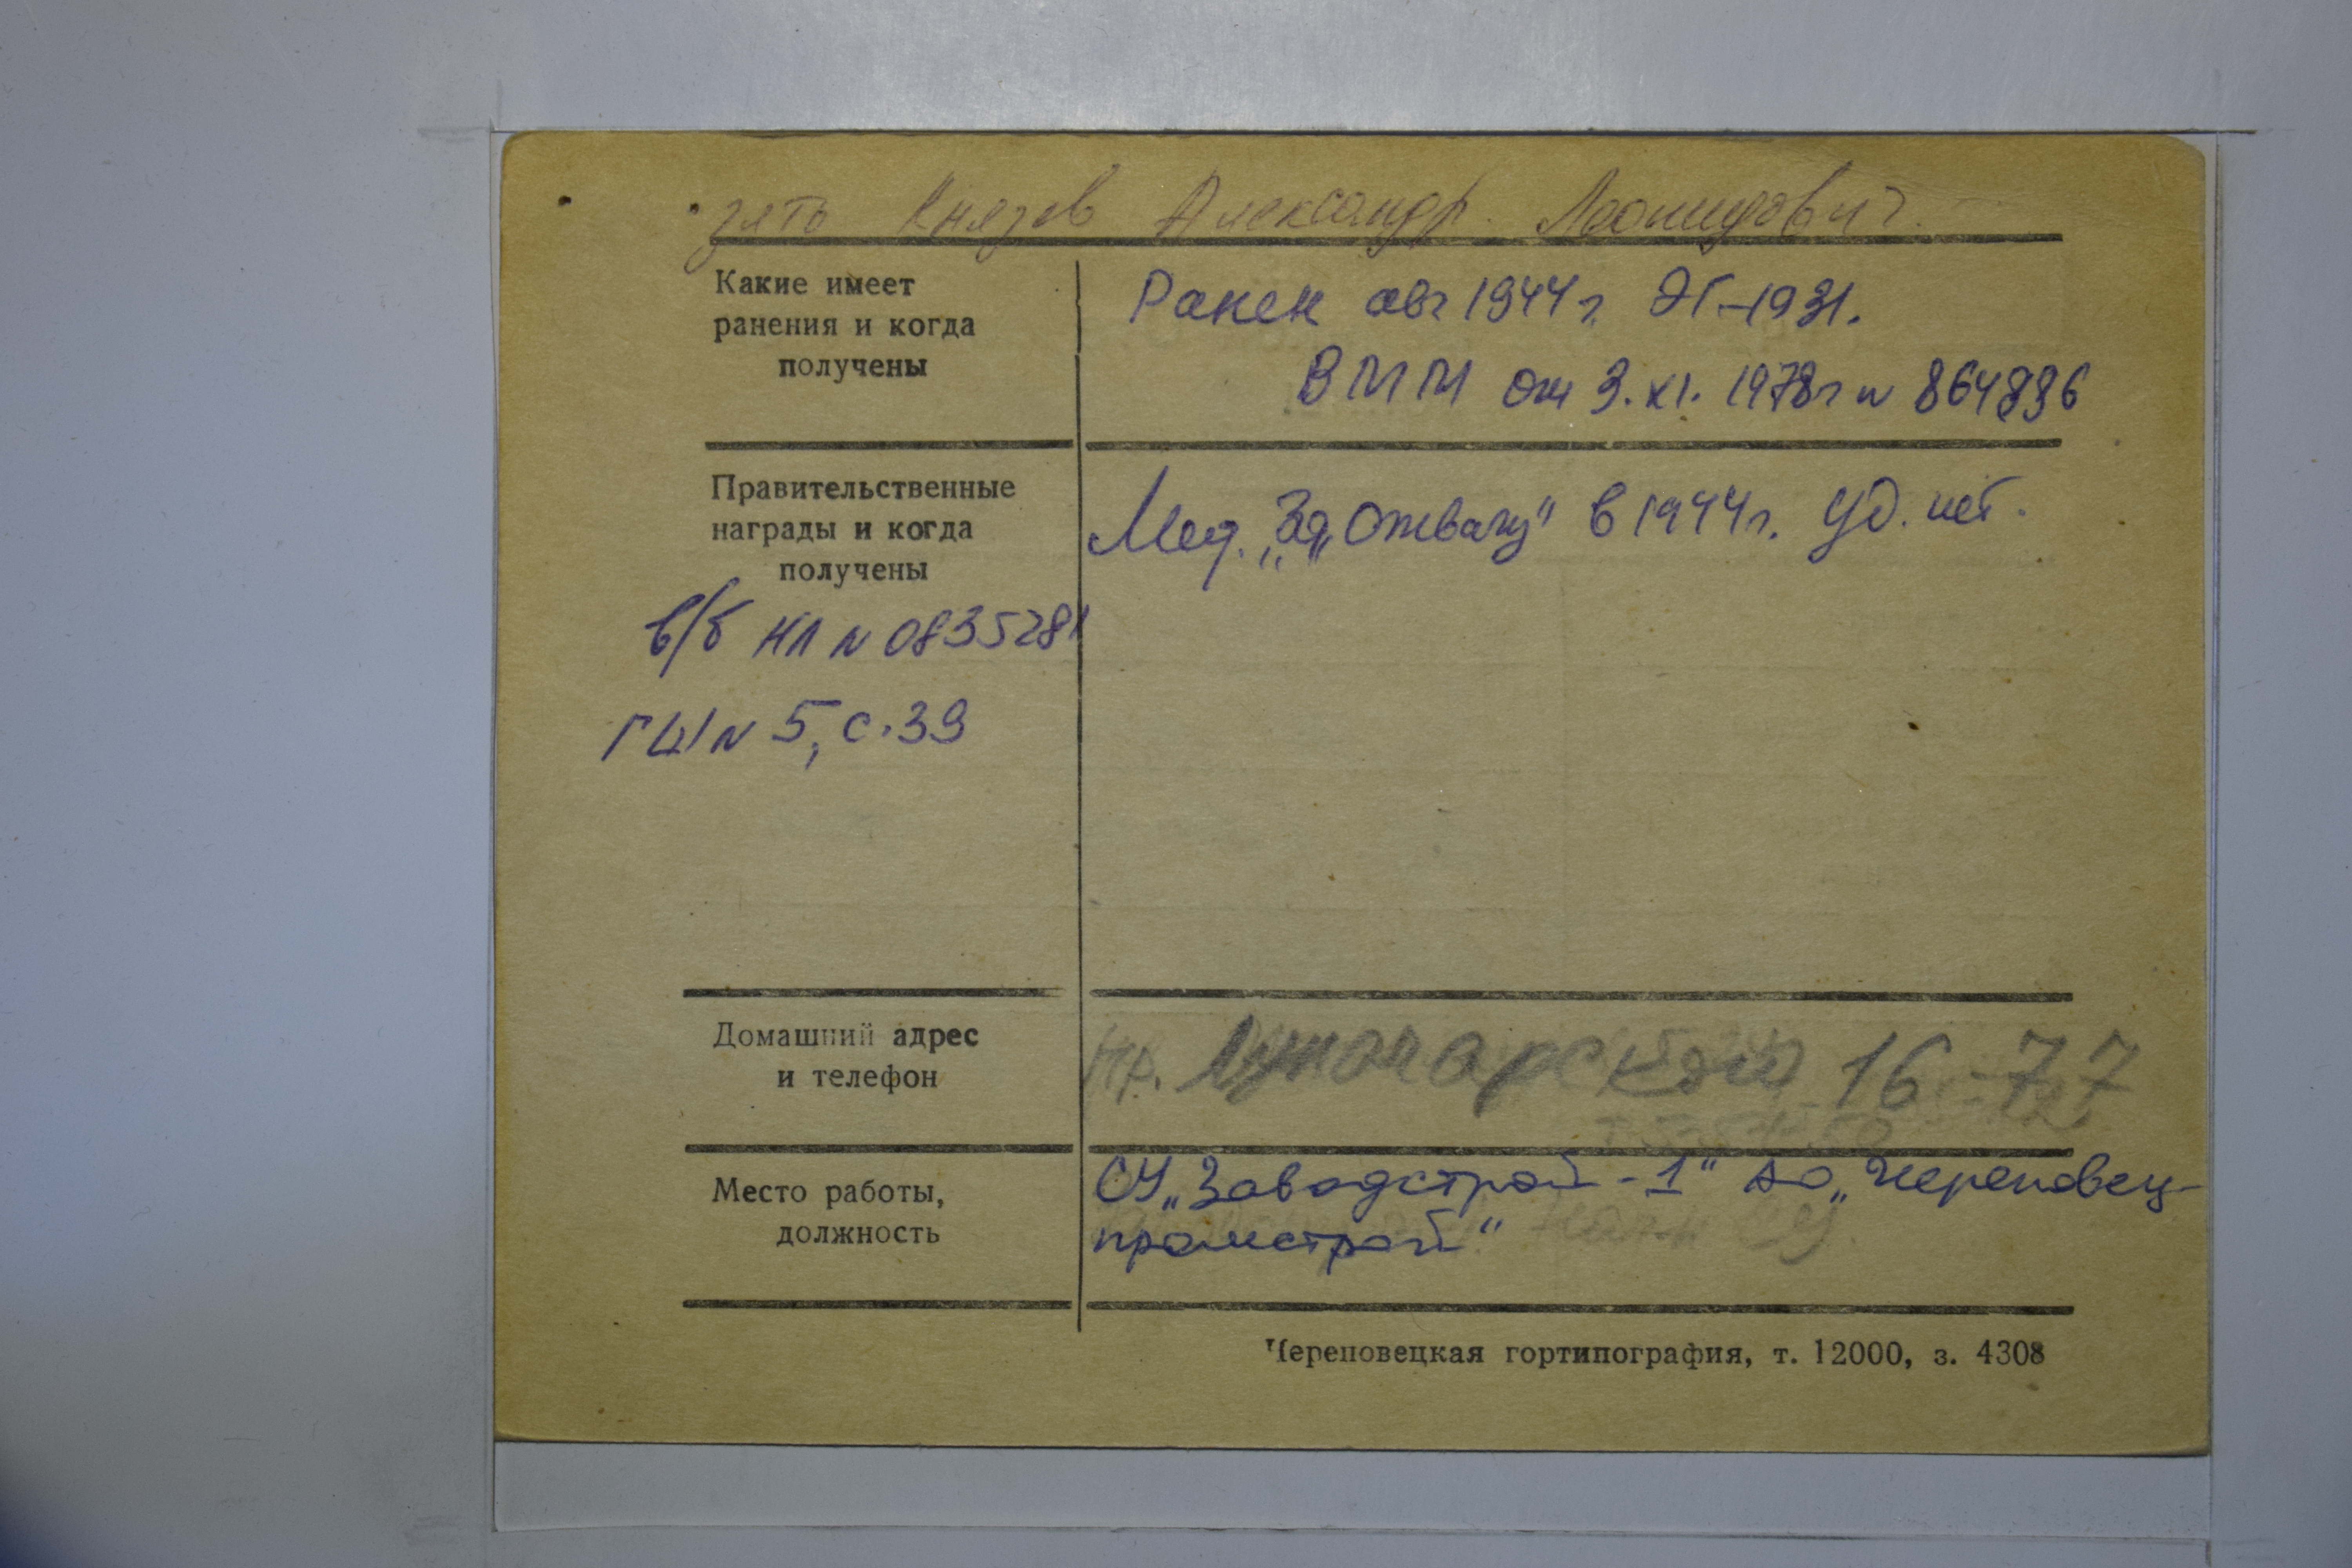 зять Князев Александр Леонидович.
Какие имеет
ранения и когда
получены
Ранен авг 1944 г. ЭГ-1931.
ВММ от 3.XI.1978г N 864896
Правительственные
награды и когда
получены
Мед. „За„Отвагу" в 1944г. уд. нет.
в/б НЛ N 0835281
ГШ N 5, с.39
Домашний адрес
и телефон
пр. Луначарского 16-77
Место работы,
должность
СУ „Заводстрой-1" АО „Череповец-
промстрой"
Череповецкая гортипография, т. 12000, з. 4308